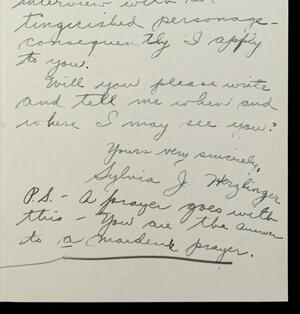 interview with
tinguished personage -
consequently I apply
to you.
Will you please write
and tell me when and
where I may see you?
Yours very sincerely,
Sylvia J. Herzlinger
P.S. - A prayer goes with
this - You are the answer
to a maiden's prayer.